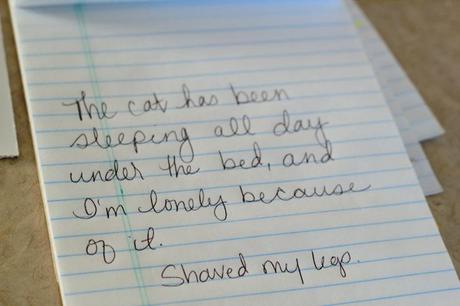 The cat has been
sleeping all day
under the bed, and
I'm lonely because
of it.
Shaved my legs.